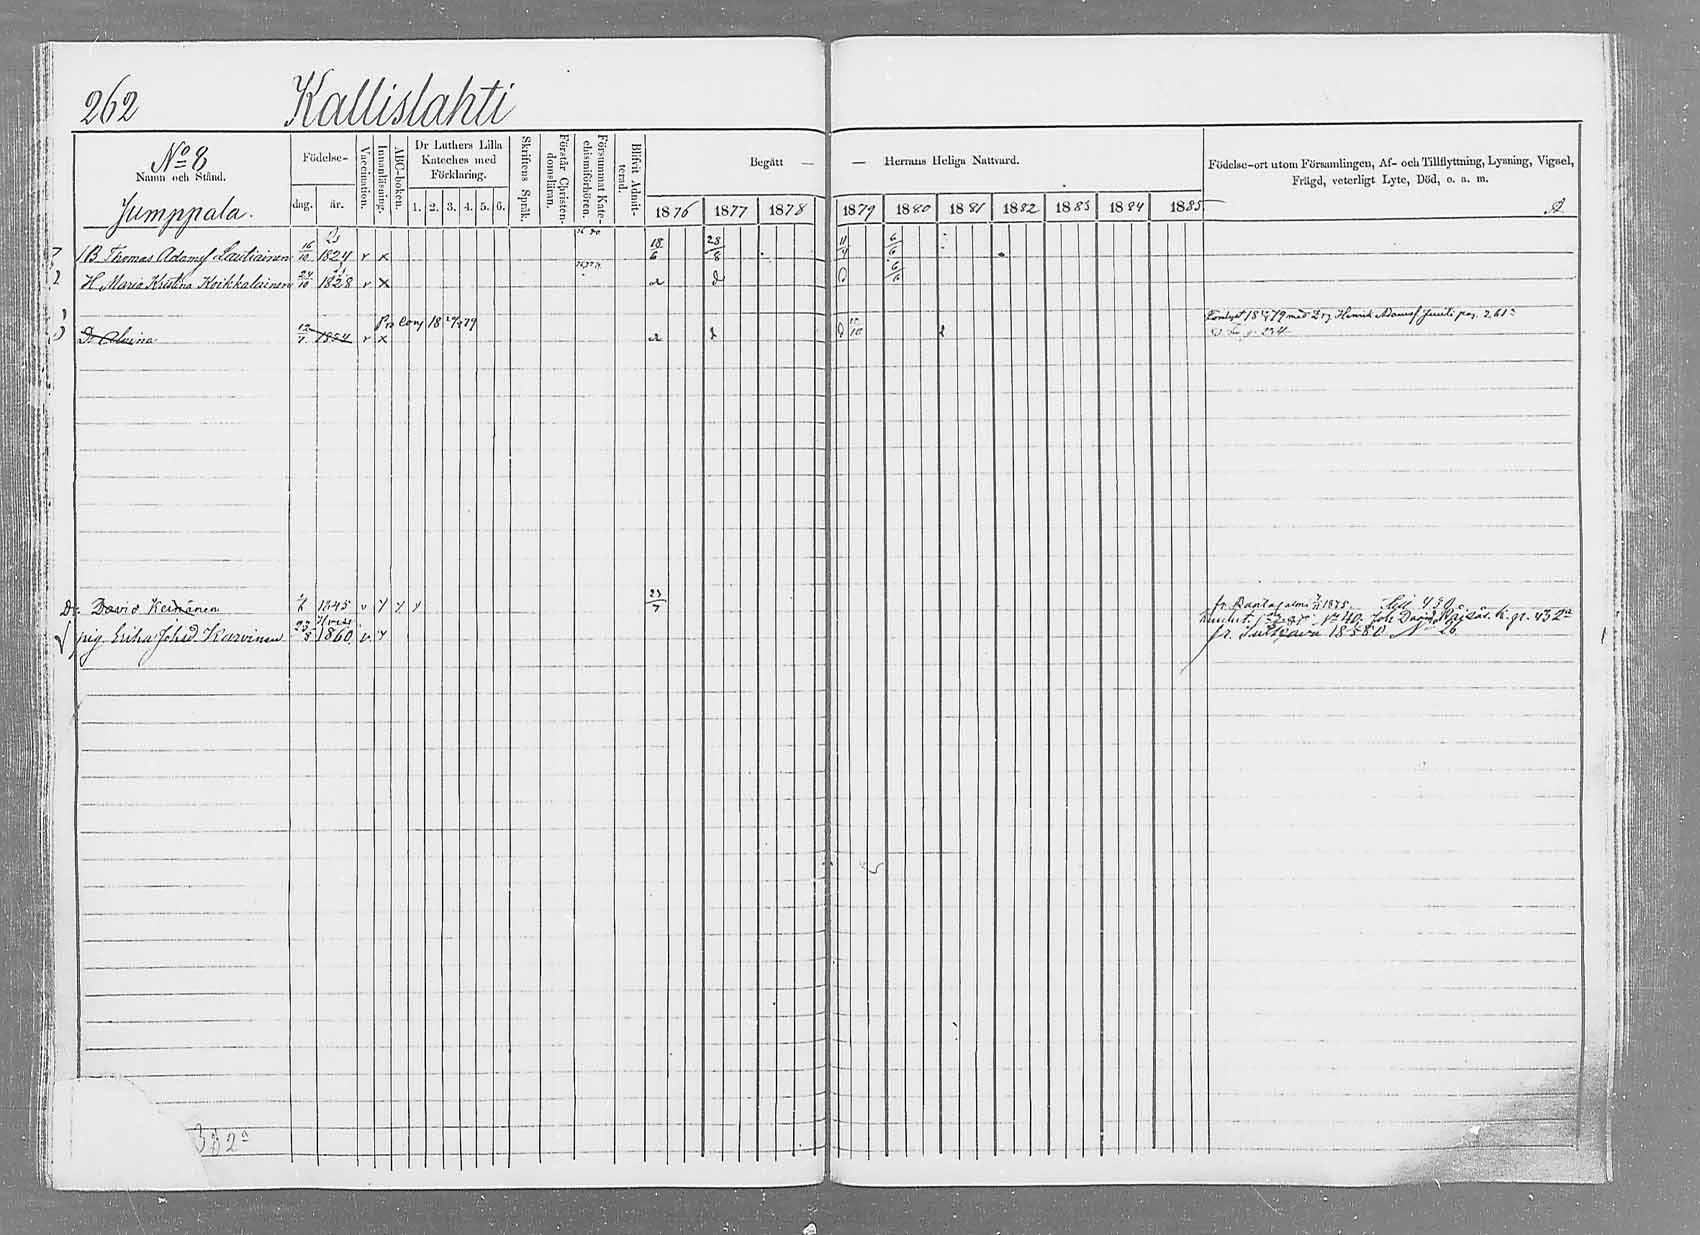 262 Kallislahti
No 8
Namn och Stånd.
Jumppala.
Födelse-
dag. år.
Vaccination.
Innanläsning.
ABC-boken.
Dr Luthers Lilla
Kateches med
Förklaring.
1. 2. 3. 4. 5. 6.
Skriftens Språk.
Förstår Christen-
domsläran.
Försummat Kate-
chismiförhören.
Blifvit Admit-
terad.
Begått — — Herrans Heliga Nattvard.
1876 1877 1878 1879 1880 1881 1882 1883 1884 1885
Födelse-ort utom Församlingen, Af- och Tillflyttning, Lysning, Vigsel,
Frägd, veterligt Lyte, Död, o. a. m.
B. Thomas Adamsf Lautiainen 16/10 1824 v x 18/6 28/8 11/4 6/6
H. Maria Kristina Koikkalainen 24/10 1828 v x d d d 6/6
D. Alvina 1854 v x d d d
med Drg Henrik Adamsf pag. 261
234
Dr. David Keinänen 1845 v y y y 23/7 fr. Rantasalmi 1875.
No 40. Joh. David 432
pig Erika Johsd Karvinen 23/5 1860 v y fr. No 26
332a